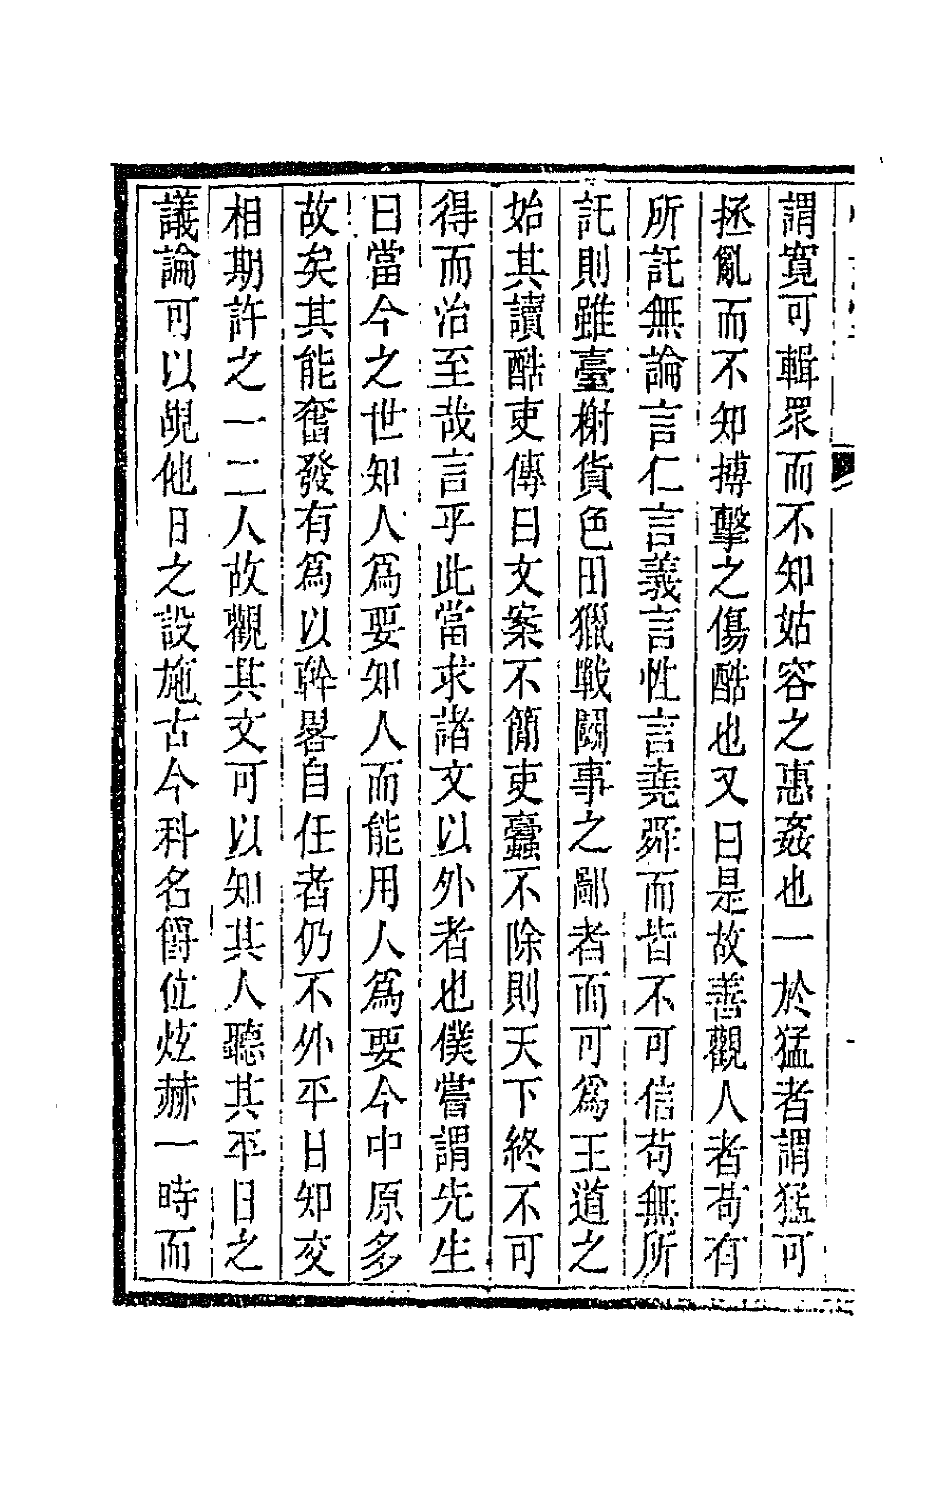 謂寬可輯眾而不知姑容之惠姦也一於猛者謂猛可
拯亂而不知搏擊之傷酷也又曰是故善觀人者苟有
所託無論言仁言義言性言堯舜而皆不可信苟無所
託則雖臺榭貨色田獵戰鬬事之鄙者而可爲王道之
始其讀酷吏傳曰文案不簡吏蠹不除則天下終不可
得而治至哉言乎此當求諸文以外者也僕嘗謂先生
曰當今之世知人爲要知人而能用人爲要今中原多
故矣其能奮發有爲以幹畧自任者仍不外平日知交
相期許之一二人故觀其文可以知其人聽其平日之
議論可以覘他日之設施古今科名爵位炫赫一時而